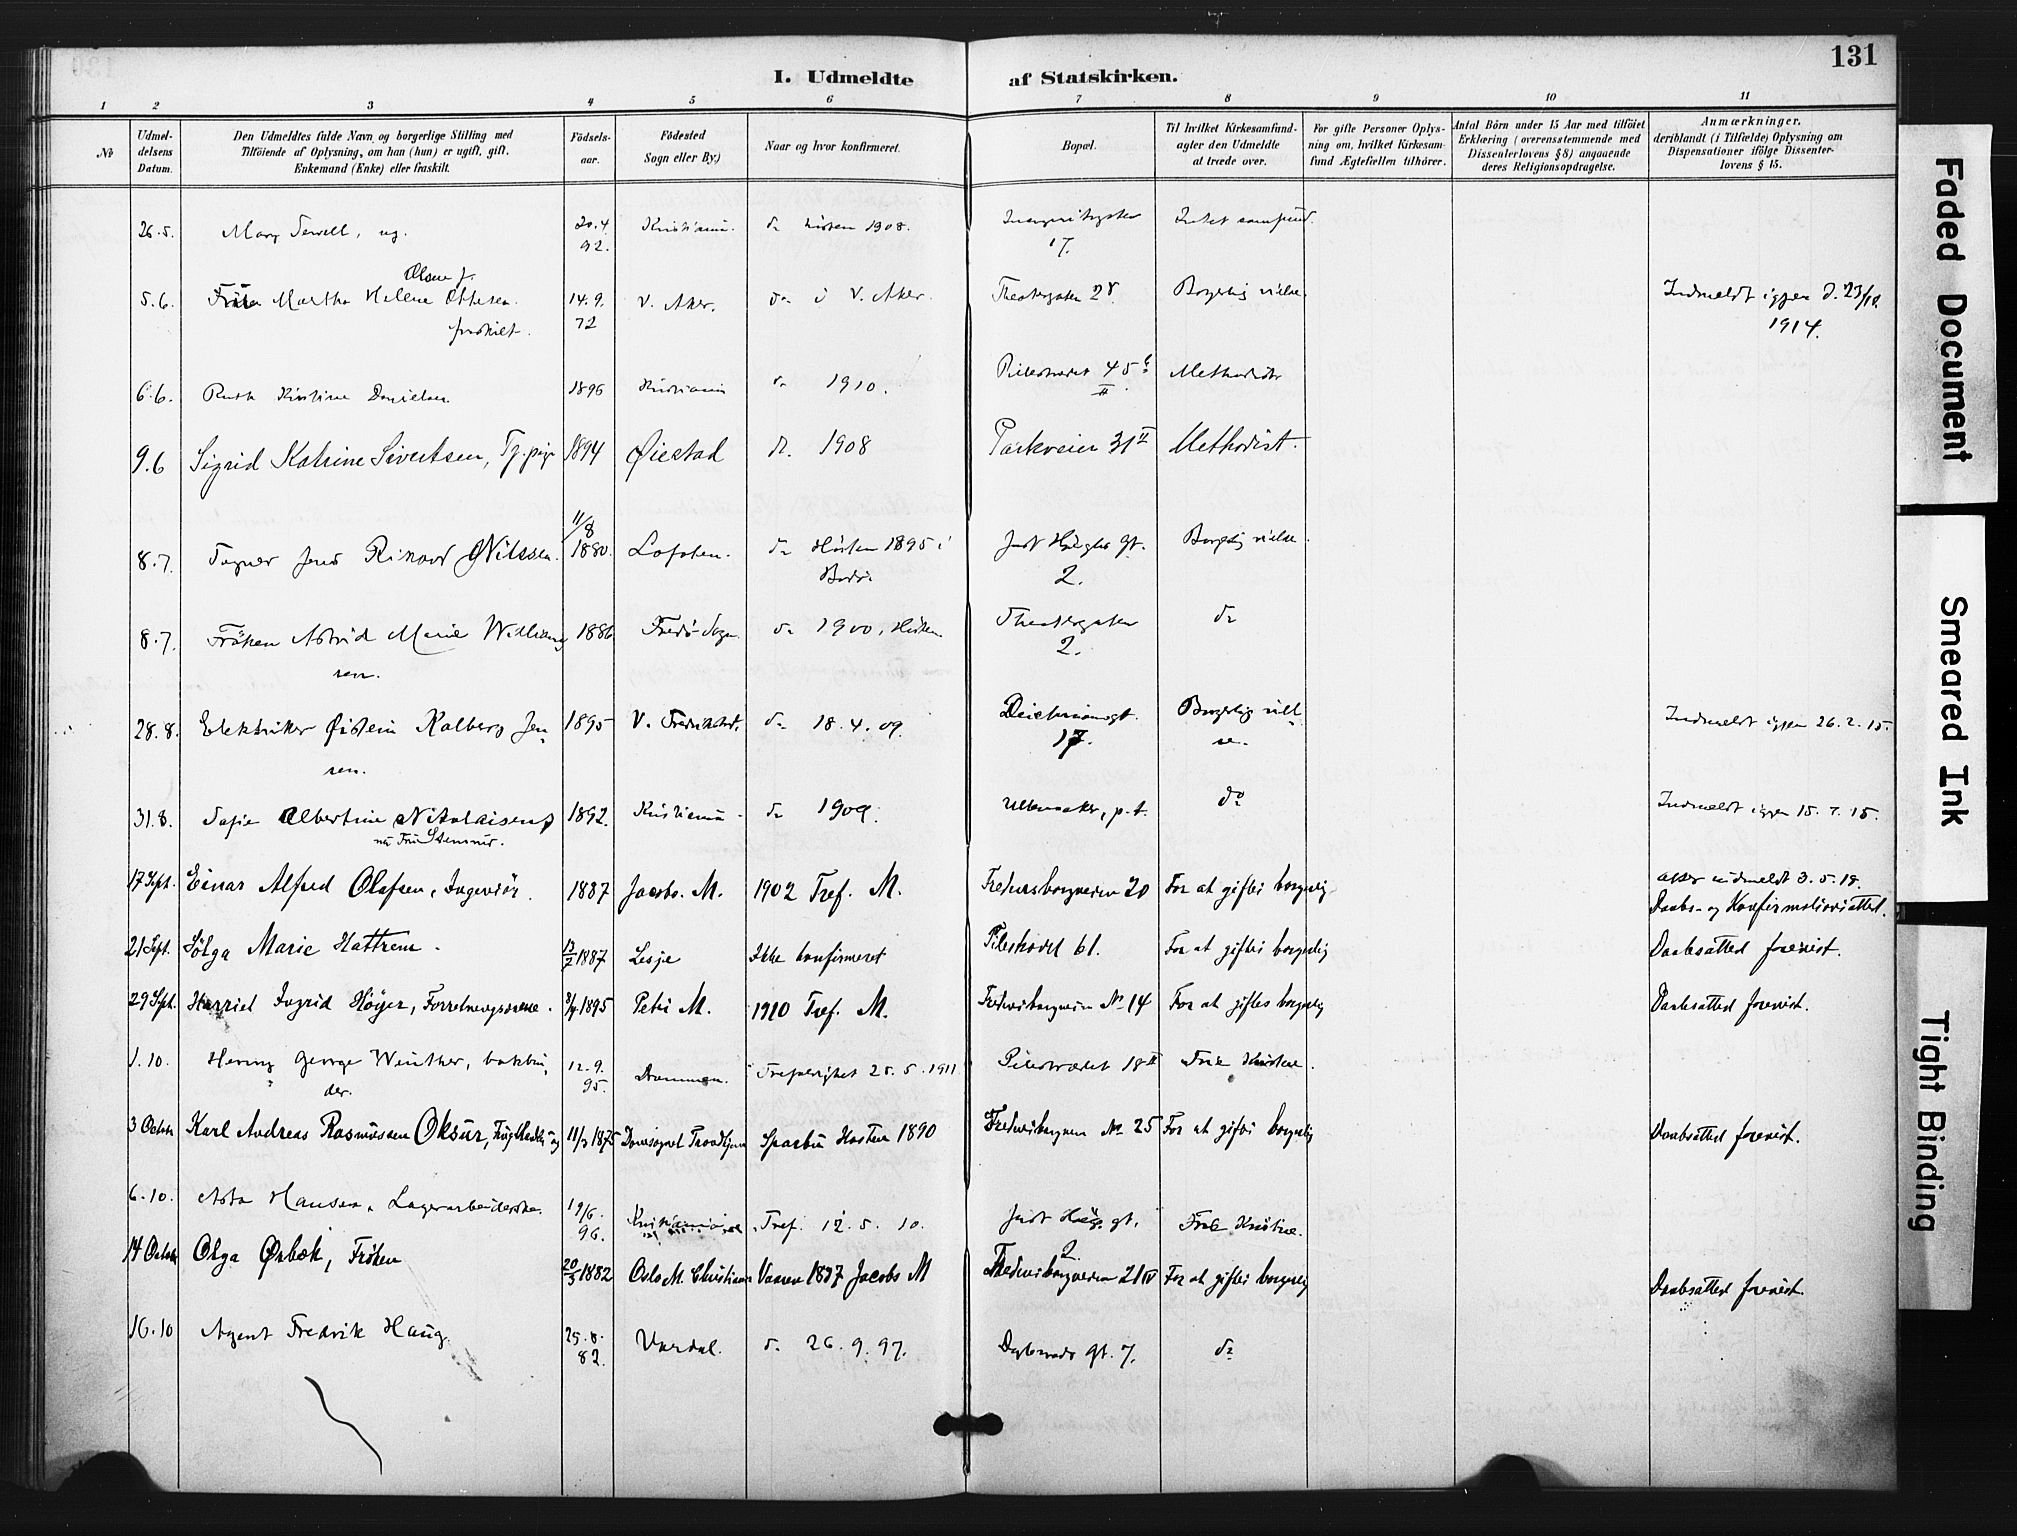 131
I. Udmeldte af Statskirken.
1 2 3 4 5 6 7 8 9 10 11
No
Udmel-
delsens
Datum.
Den Udmeldtes fulde Navn og borgerlige Stilling med
Tilföiende af Oplysning, om han (hun) er ugift, gift,
Enkemand (Enke) eller fraskilt.
Födsels-
aar.
Födested
Sogn eller By.)
Naar og hvor konfirmeret.
Bopæl.
Til hvilket Kirkesamfund-
agter den Udmeldte
at træde over.
For gifte Personer Oplys-
ning om, hvilket Kirkesam-
fund Ægtefællen tilhörer.
Antal Börn under 15 Aar med tilföiet
Erklæring (overensstemmende med
Dissenterlovens § 8) angaaende
deres Religionsopdragelse.
Anmærkninger,
deriblandt (i Tilfælde) Oplysning om
Dispensationer ifölge Dissenter-
lovens § 15.
26.5. Mary Sewell, ug. 20.4. Kristiania. do hösten 1908. Intet samfund.
92. 17.
Olsen f.
5.6. Martha Helene Ottesen 14.9. V. Aker. do i V. Aker. Theatergaten 28. Borgerlig vielse. Indmeldt igjen d. 23/12
fraskilt. 72 1914.
6.6. Ruth Kristine Danielsen 1896 Kristiania do 1910. Pilestrædet 45 Methodist
II
9.6 Sigrid Katrine Sivertsen, Tj.pige 1894 Øiestad do. 1908 Parkveien 31 II Methodist.
11/8
8.7. Jens Rikard Nilssen. 1880. Lofoten. do Hösten 1895 i Just Höeghs gt. Borgerlig vielse
Bodö. 2.
8.7. Fröken Astrid Marie William- 1886 do 1900, Hösten Theatergaten do
sen. 2.
28.8. Elektriker Øistein Kalberg Jen- 1895 V. Fredrikstad. do 18.4.09. Deichmansgt. Borgerlig viel- Indmeldt igjen 26.2.15.
sen. 17. se.
31.8. Albertine Nikolaisen 1892. Kristiania do 1909. Ullensaker, p.t. do Indmeldt igjen 15.7.15.
nu Fru
17 Sept. Einar Alfred Olafsen, Ingeniör. 1887 Jacobs. M. 1902 Tref. M. Frederiksborgveien 20 For at giftes borgerlig indmeldt 3.5.19.
Daabs- og Konfirmationsattest.
21 Sept. Sölga Marie Hattrem. 13/7 1887 Lesje Ikke konfirmeret Pilestrædet 61. For at giftes borgerlig Daabsattest forevist.
29 Sept. Harriet Ingrid Höyer, 1895 Petri M. 1910 Tref. M. Frederiksborgveien No 14 For at giftes borgerlig Daabsattest forevist.
1.10. George Winther, bokbin- 12.9. Drammen. Trefoldighet 25.5.1911 Pilestrædet 18 II Frie Kristne.
der. 95.
3 Octob Karl Andreas Rasmussen Oksur, 11/3 1875 Domsognet Trondhjem Sparbu Hösten 1890 Frederiksborgveien No 25 For at giftes borgerlig Daabsattest forevist.
6.10. Asta Hansen, Lagerarbeiderske. 19/6. Kristiania Tref. 12.5.10. Just Höegs gt. Frie Kristne.
96. 2.
14 Octob Olga Ørbæk, Fröken 20/3 1882 Oslo M. Christiania Vaaren 1897 Jacobs M Frederiksborgveien 21 IV For at giftes borgerlig Daabsattest forevist.
16.10 Agent Fredrik Haug. 25.8. Vardal. do 26.9.97. gt. 7. do
82.
Faded Document
Smeared Ink
Tight Binding